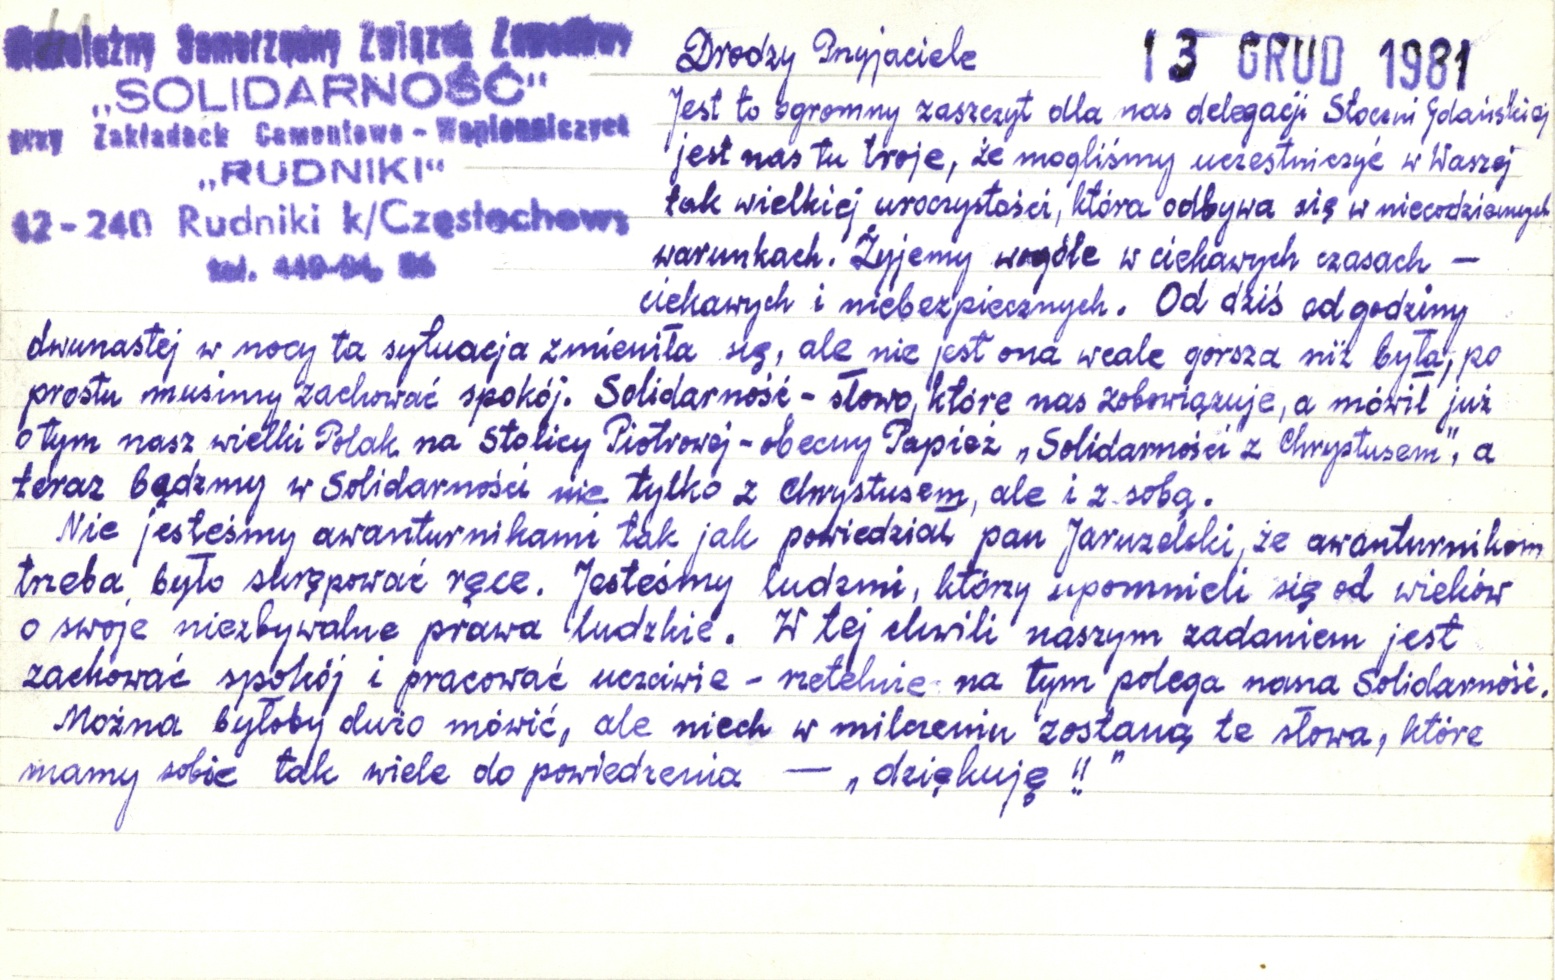 Niezależny Samorządny Związek Zawodowy
„SOLIDARNOŚĆ"
przy Zakładach Cementowo - Wapienniczych
„RUDNIKI"
42-240 Rudniki k/Częstochowy
tel.
13 GRUD 1981
Drodzy Przyjaciele
Jest to ogromny zaszczyt dla nas delegacji Stoczni Gdańskiej
jest nas tu troje, że mogliśmy uczestniczyć w Waszej
tak wielkiej uroczystości, która odbywa się w niecodziennych
warunkach. Żyjemy wogóle w ciekawych czasach —
ciekawych i niebezpiecznych. Od dziś od godziny
dwunastej w nocy ta sytuacja zmieniła się, ale nie jest ona wcale gorsza niż była, po
prostu musimy zachować spokój. Solidarność - słowo, które nas zobowiązuje, a mówił już
o tym nasz wielki Polak na Stolicy Piotrowej - obecny Papież „Solidarności z Chrystusem", a
teraz bądzmy w Solidarności nie tylko z Chrystusem, ale i z sobą.
Nie jesteśmy awanturnikami tak jak powiedział pan Jaruzelski, że awanturnikom
trzeba było skrępować ręce. Jesteśmy ludzmi, którzy upomnieli się od wieków
o swoje niezbywalne prawa ludzkie. W tej chwili naszym zadaniem jest
zachować spokój i pracować uczciwie - rzetelnie na tym polega nasza Solidarność.
Można byłoby dużo mówić, ale niech w milczeniu zostaną te słowa, które
mamy sobie tak wiele do powiedzenia — „dziękuję !!"